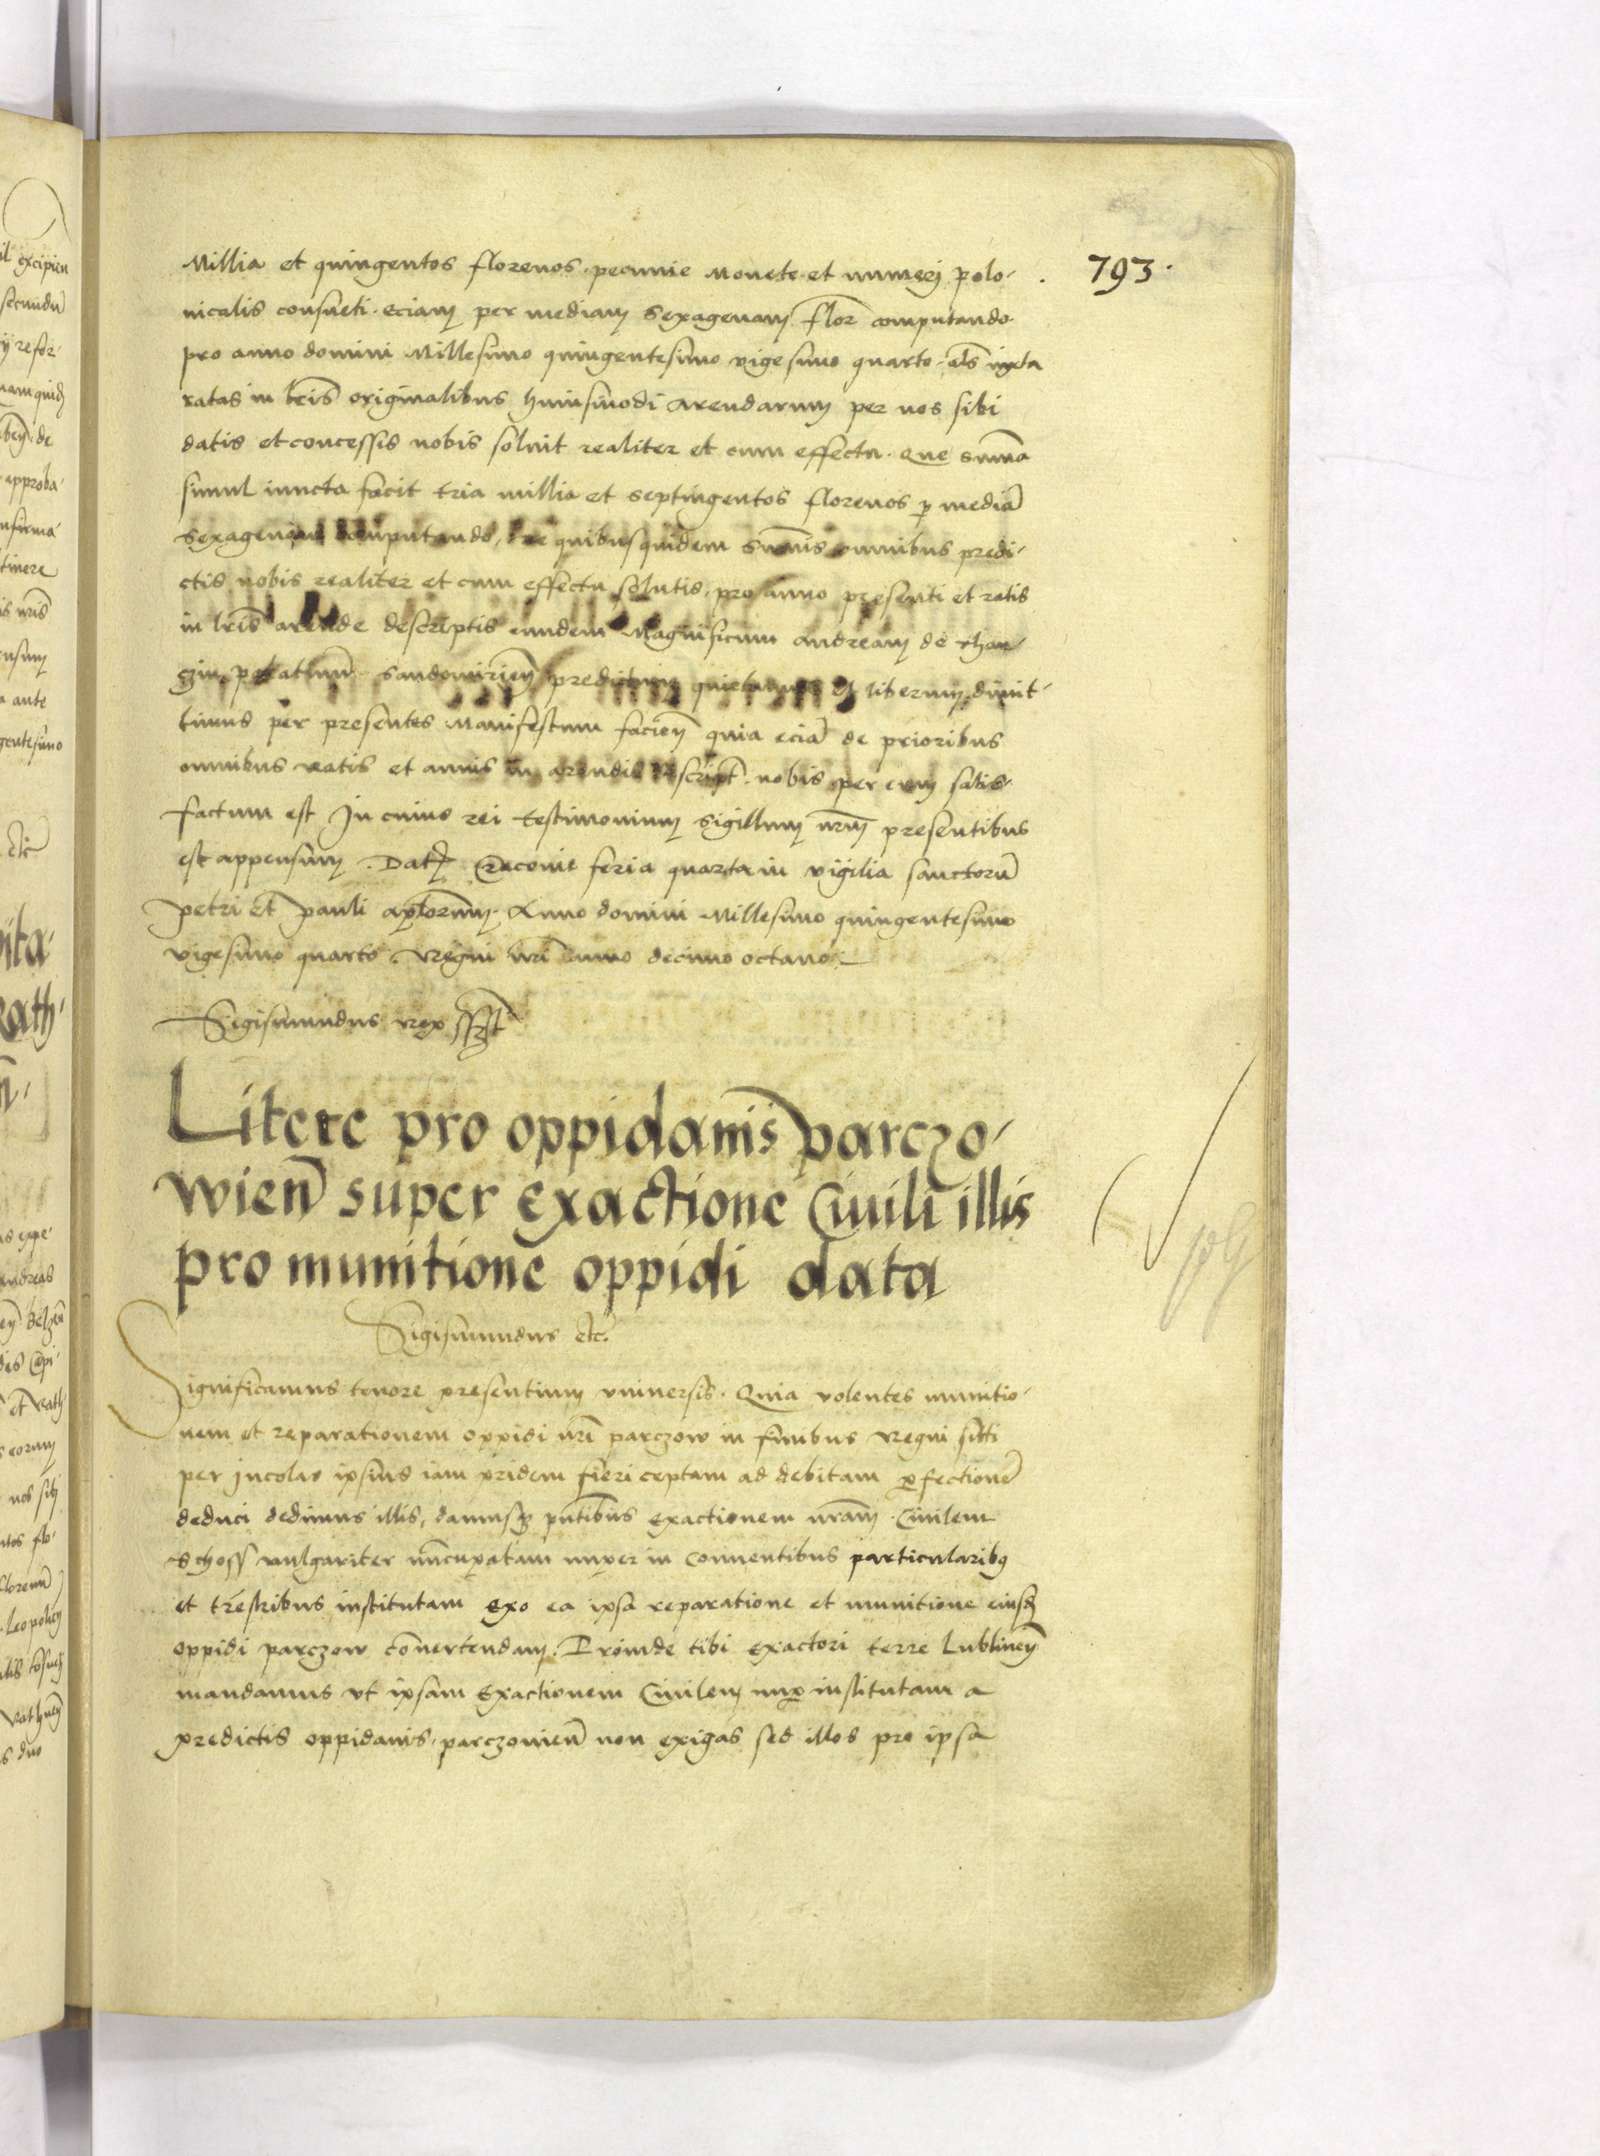 793.
Millia et quingentos florenos. pecunie Monete et numeri polo-
nicalis consueti. eciam per mediam sexagenam flor̄ computando
pro anno domini Millesimo quingentesimo vigesimo quarto iuxta
ratas in lr̄is originalibus huiusmodi arendarum per nos sibi
datis et concessis nobis soluit realiter et cum effectu. Que summa
simul iuncta facit tria millia et septingentos florenos p mediā
sexagenam computando, de quibusquidem summis omnibus predi-
ctis nobis realiter et cum effectu solutis, pro anno presenti et ratis
in lr̄is arende descriptis eundem Magnificum andream de than-
czin palatinum Sandomirien̄ predictum quietamus et liberum dimit-
timus per presentes Manifestum facien̄ quia eciā de prioribus
omnibus ratis et annis in arendis script. nobis per eum satis-
factum est In cuius rei testimonium sigillum nr̄m presentibus
est appensum. Dat Cracouie feria quarta in vigilia sanctorū
petri et pauli ap̄lorum. Anno domini Millesimo quingentesimo
vigesimo quarto. Regni nr̄i anno decimo octauo
Sigismundus rex sszt
Litere pro oppidanis parczo-
wien̄ super exactione Ciuili illis
pro munitione oppidi data
Sigismundus etc.
Significamus tenore presentium vniuersis. Quia volentes munitio-
nem et reparationem oppidi nr̄i parczow in finibus Regni siti
per Incolas ipsius iam pridem fieri ceptam ad debitam pfectionē
deduci dedimus illis, damusq pn̄tibus exactionem nr̄am. Ciuilem
schoss vulgariter nūcupatam nuper in Conuentibus particularibq
et tr̄estribus institutam pro ea ipsa reparatione et munitione eiusd
oppidi parczow conuertendam. Proinde tibi exactori terre Lublinen̄
mandamus vt ipsam exactionem Ciuilem nup institutam a
predictis oppidanis parczouien̄ non exigas sed illos pro ipsa